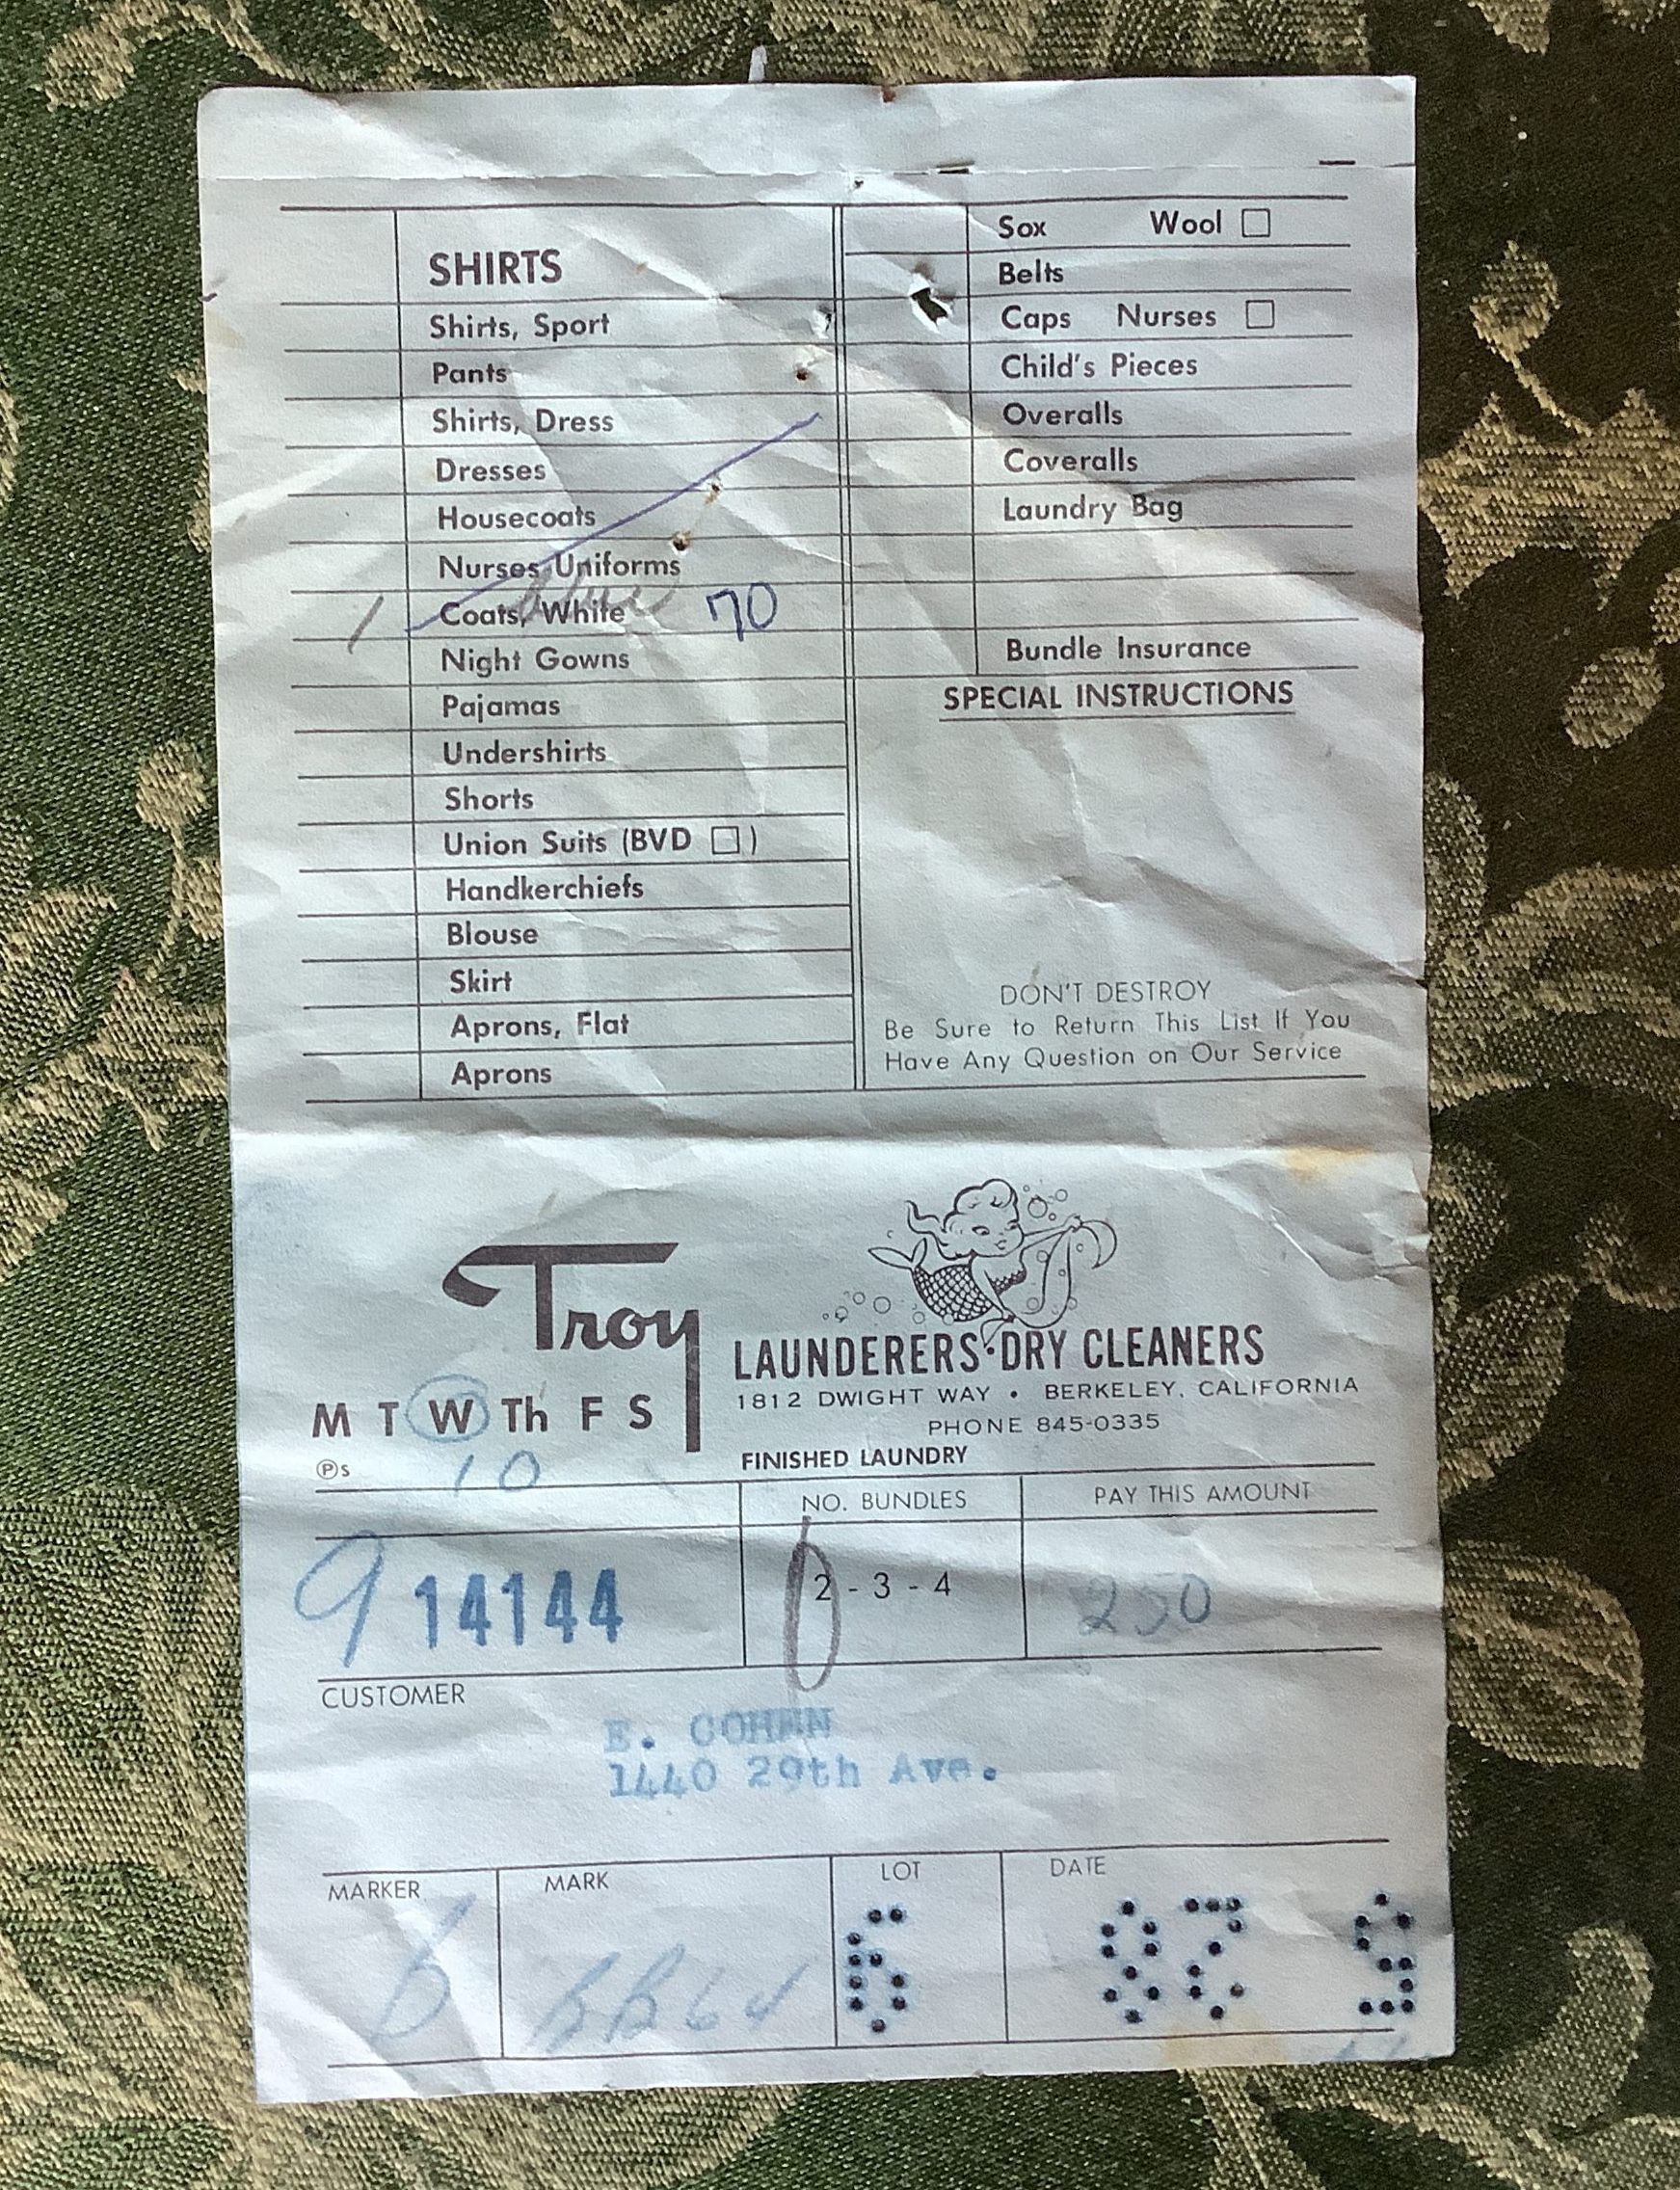 SHIRTS
Shirts, Sport
Pants
Shirts, Dress
Dresses
Housecoats
Nurses Uniforms
1 Coats, White 70
Night Gowns
Pajamas
Undershirts
Shorts
Union Suits (BVD ☐)
Handkerchiefs
Blouse
Skirt
Aprons, Flat
Aprons
Sox Wool ☐
Belts
Caps Nurses ☐
Child's Pieces
Overalls
Coveralls
Laundry Bag
Bundle Insurance
SPECIAL INSTRUCTIONS
DON'T DESTROY
Be Sure to Return This List If You
Have Any Question on Our Service
Troy
LAUNDERERS•DRY CLEANERS
1812 DWIGHT WAY • BERKELEY, CALIFORNIA
PHONE 845-0335
M T W Th F S
Ⓟs 10
FINISHED LAUNDRY
NO. BUNDLES
PAY THIS AMOUNT
9 14144
2 - 3 - 4
250
CUSTOMER
E. COHEN
1440 29th Ave.
MARKER
MARK
LOT
DATE